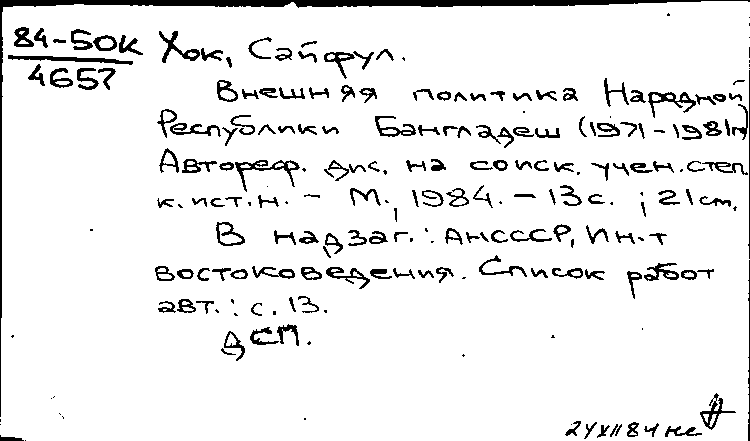 84-50К Хок, Сайфул.
4657
Внешняя политика Народной
Республики Бангладеш (1971-1981гг)
Автореф. дис. на соиск. учен. степ.
к. ист. н. - М., 1984. - 13 с. ; 21 см.
В надзаг.: АНСССР, Ин-т
востоковедения. Список работ
авт.: с. 13.
ДСП.
24 XII 84 нс